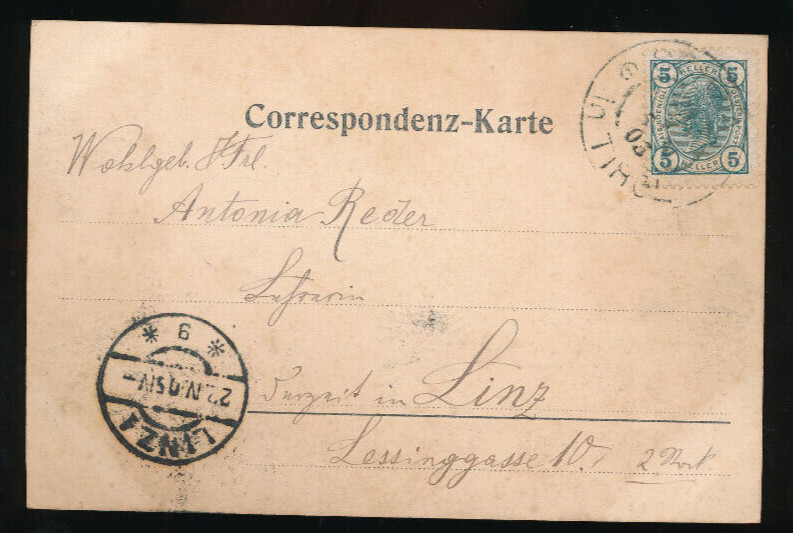 Correspondenz-Karte
5 HELLER 5
5 HELLER 5
Wohlgeb. Frl.
Antonia Reder
Lehrerin
derzeit in Linz
Lessinggasse 10. 2 Stock
LINZ 1
9